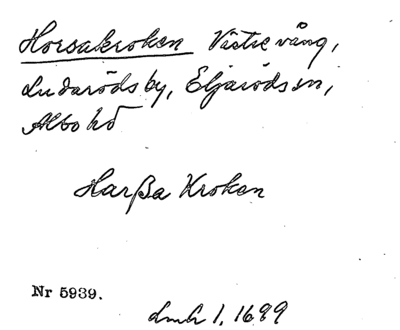 Horsakroken Västre vång,
Ludaröds by, Eljaröds sn,
Albo hd
Harßa Kroken
Nr 5939.
dmb 1, 1699